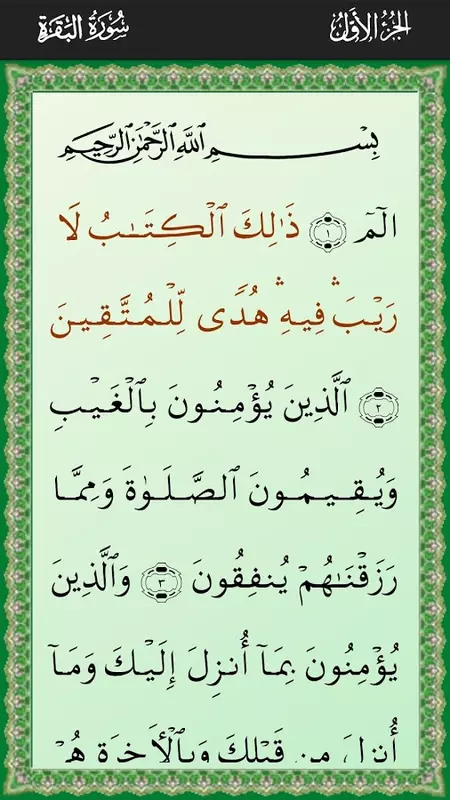 الجُزْءُ الأَوَّلُ
سُورَةُ البَقَرَةِ
بِسْمِ ٱللَّهِ ٱلرَّحْمَٰنِ ٱلرَّحِيمِ
الٓمٓ ١ ذَٰلِكَ ٱلْكِتَٰبُ لَا
رَيْبَ ۛ فِيهِ ۛ هُدًى لِّلْمُتَّقِينَ
٢ ٱلَّذِينَ يُؤْمِنُونَ بِٱلْغَيْبِ
وَيُقِيمُونَ ٱلصَّلَوٰةَ وَمِمَّا
رَزَقْنَٰهُمْ يُنفِقُونَ ٣ وَٱلَّذِينَ
يُؤْمِنُونَ بِمَآ أُنزِلَ إِلَيْكَ وَمَآ
أُنزِلَ مِن قَبْلِكَ وَبِٱلْأَخِرَةِ هُمْ